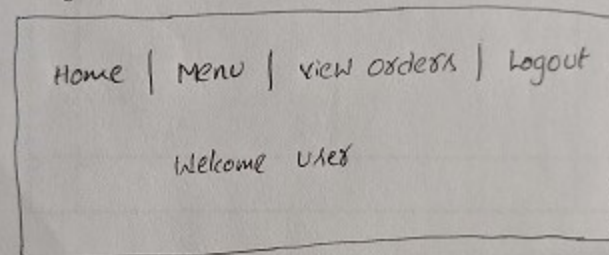 Home | Menu | view orders | Logout
Welcome user